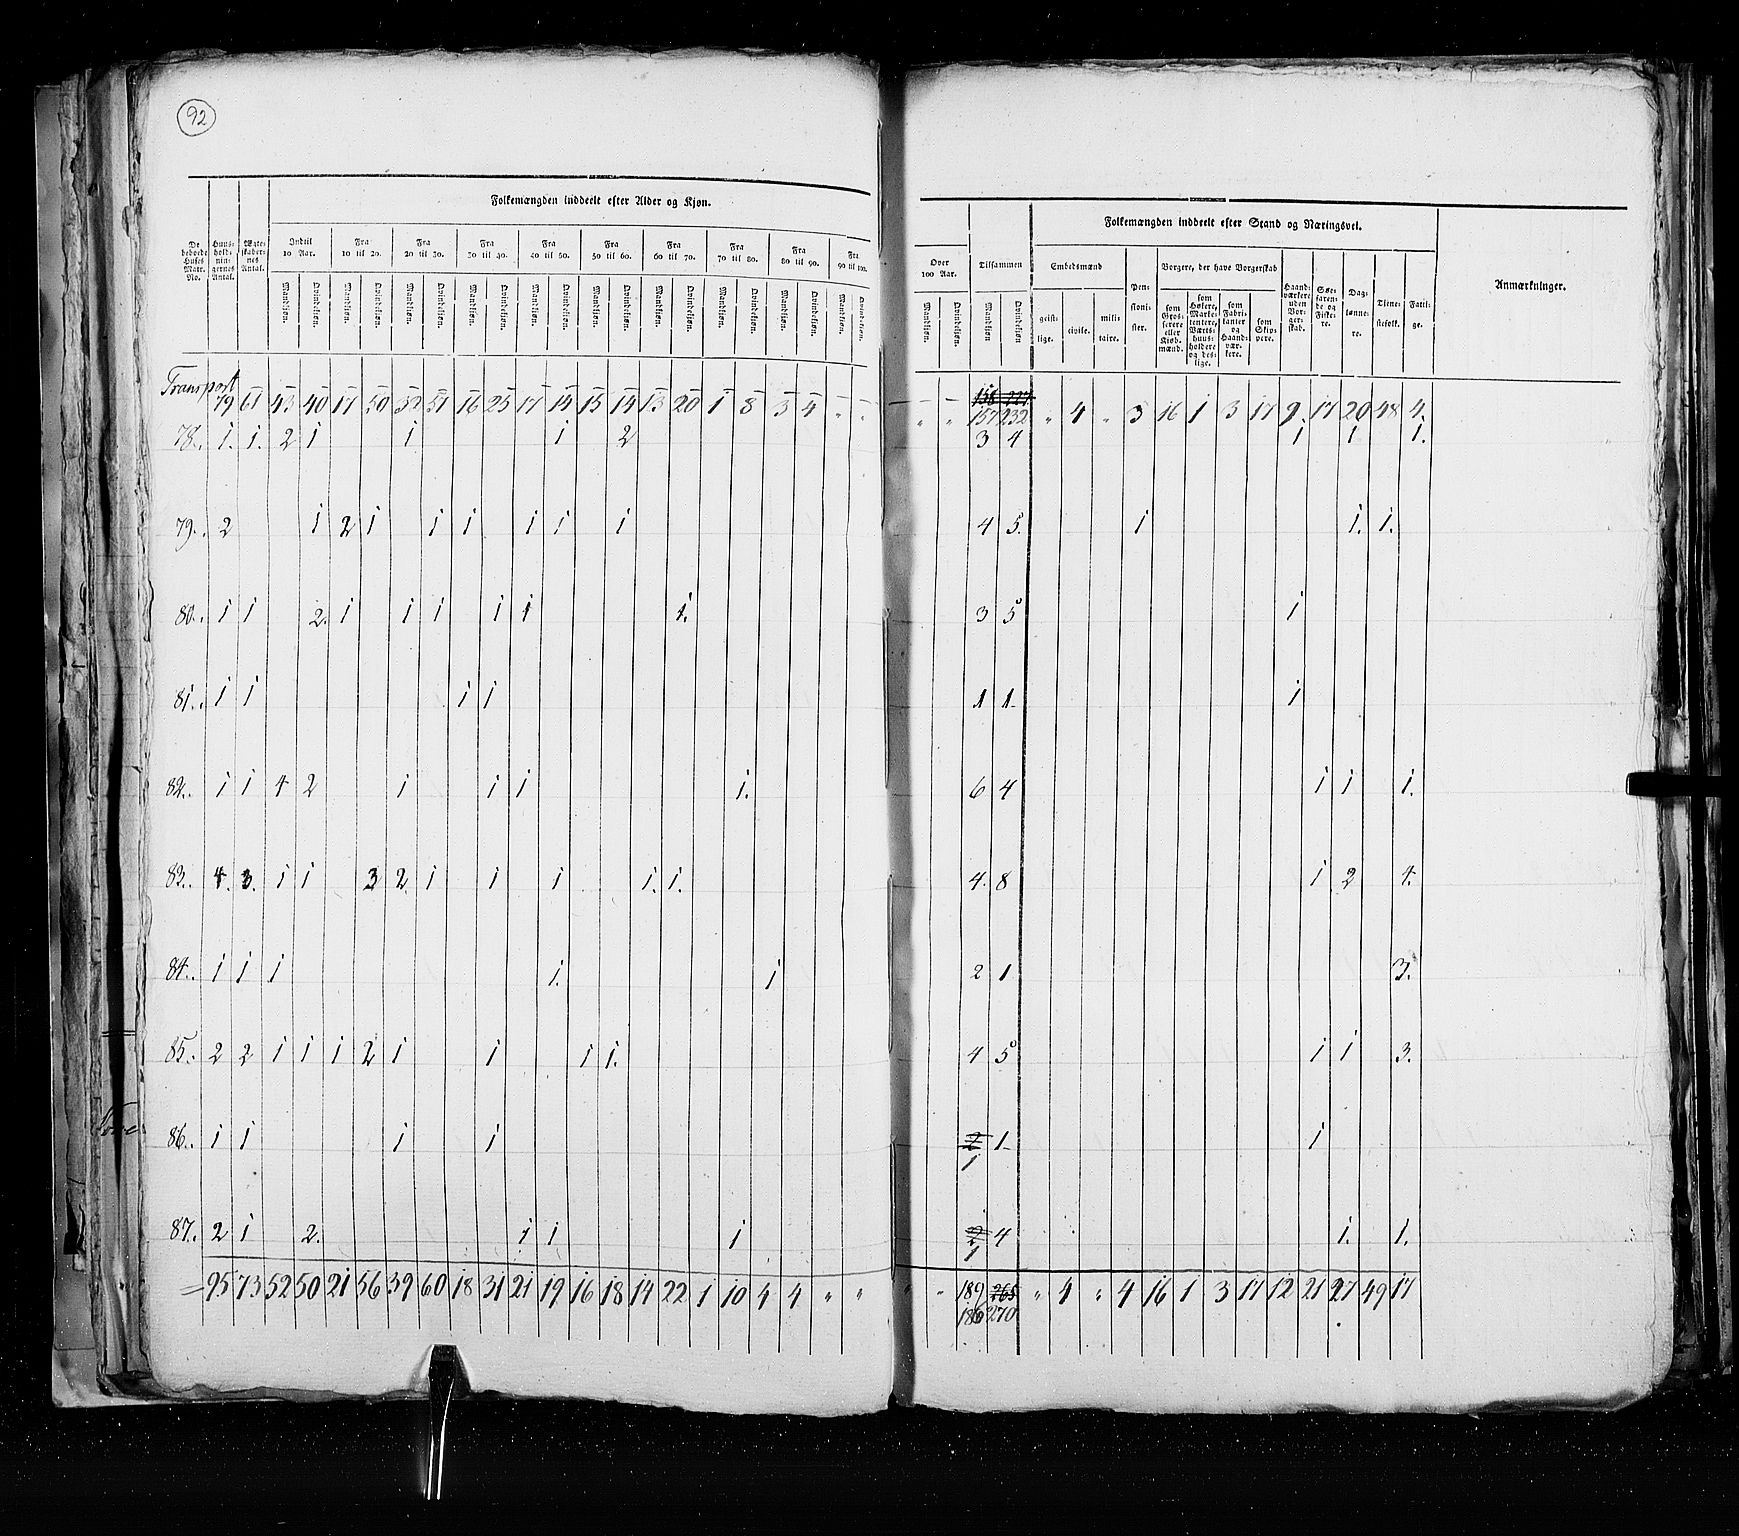 92
Folkemængden inddeelt efter Alder og Kjøn.
De beboede Huses Matr. No.
Huusholdningernes Antal.
Ægteskabernes Antal.
Indtil 10 Aar. Fra 10 til 20. Fra 20 til 30. Fra 30 til 40. Fra 40 til 50. Fra 50 til 60. Fra 60 til 70. Fra 70 til 80. Fra 80 til 90. Fra 90 til 100.
Mandkjøn. Qvindekjøn. Mandkjøn. Qvindekjøn. Mandkjøn. Qvindekjøn. Mandkjøn. Qvindekjøn. Mandkjøn. Qvindekjøn. Mandkjøn. Qvindekjøn. Mandkjøn. Qvindekjøn. Mandkjøn. Qvindekjøn. Mandkjøn. Qvindekjøn. Mandkjøn. Qvindekjøn.
Over 100 Aar. Tilsammen
Mandkjøn. Qvindekjøn. Mandkjøn Qvindekjøn
Folkemængden inddeelt efter Stand og Næringsvei.
Embedsmænd
geistlige. civile. militaire.
Pensionister.
Borgere, der have Borgerskab
som Grosserere eller Kiøbmænd.
som Høkere, Marketentere, Værtshuusholdere og deslige.
som Fabrikanter og Haandværkere.
som Skippere.
Haandværkere uden Borgerskab.
Søefarende og Fiskere.
Daglønnere.
Tienestefolk.
Fattige.
Anmærkninger.
Transport
79 61 43 40 17 50 32 51 16 25 17 14 15 14 13 20 1 8 3 4 " " " " 157 232 " 4 " 3 16 1 3 17 9 17 20 48 4.
78. 1. 1. 2 1 1 1 2 3 4 1 1. 1.
79. 2 1 2 1 1 1 1 1 1 4 5. 1 1. 1.
80. 1 1 2. 1 1 1 1 1 1. 3 5 1
81. 1 1 1 1 1 1 1
82. 1 1 4 2 1 1 1 1. 6 4 1 1 1.
83. 4. 3. 1 1 3 2 1 1 1 1. 1. 4. 8 1 2 4.
84. 1 1 1 1. 1 2 1 3.
85. 2 2 1 1 1 2 1 1 1 1. 4 5 1 1 3.
86. 1 1 1 1 2 1 1
1
87. 2 1 2. 1 1 1 2 4 1. 1.
1
= 95 73 52 50 21 56 39 60 18 31 21 19 16 18 14 22 1 10 4 4 " " " " 189 265 " 4 " 4 16 1 3 17 12 21 27 49 17
186 270